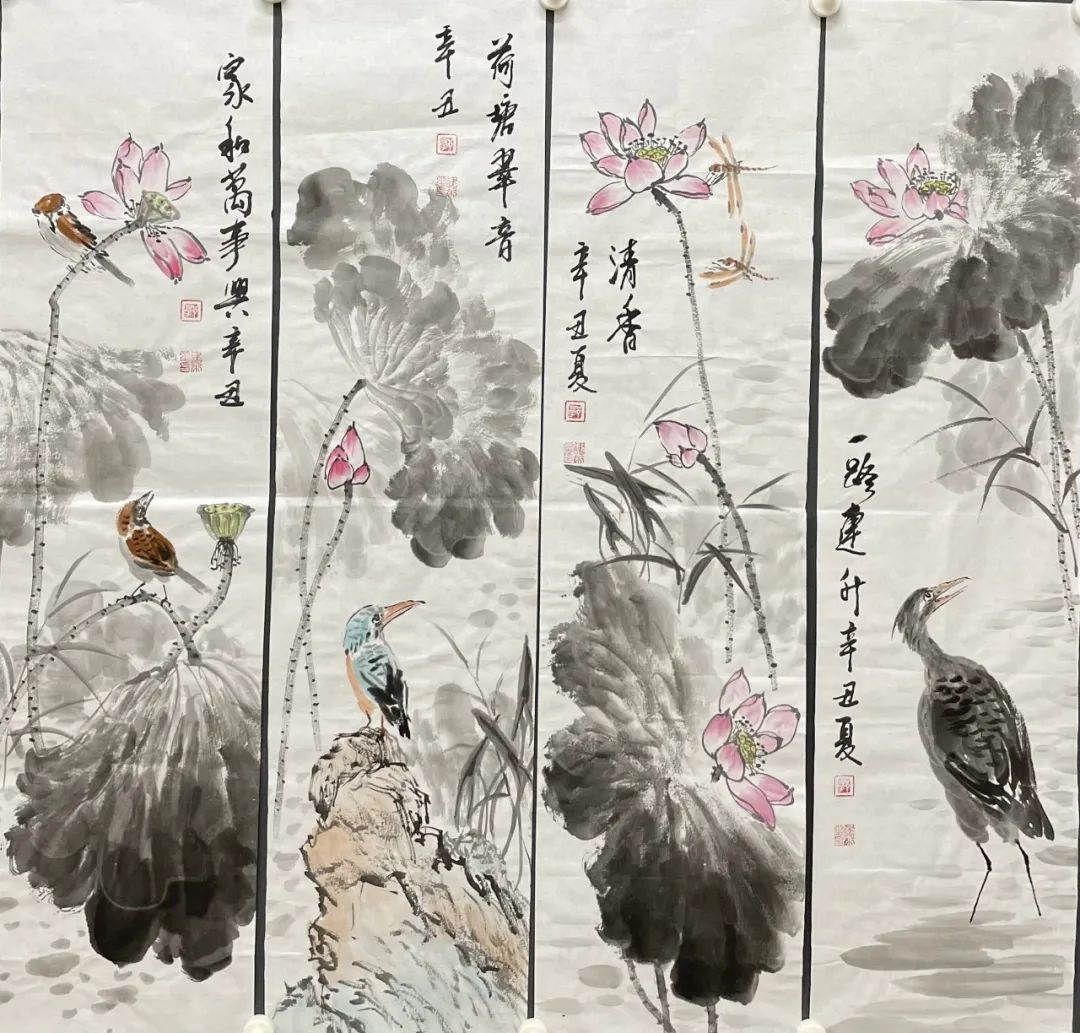 家和萬事興辛丑
荷塘翠音
辛丑
清香
辛丑夏
一路連升辛丑夏